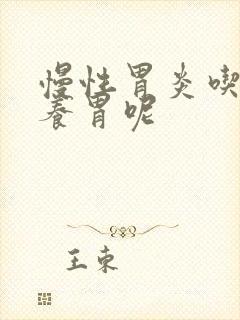 慢性胃炎喫
養胃呢
王東